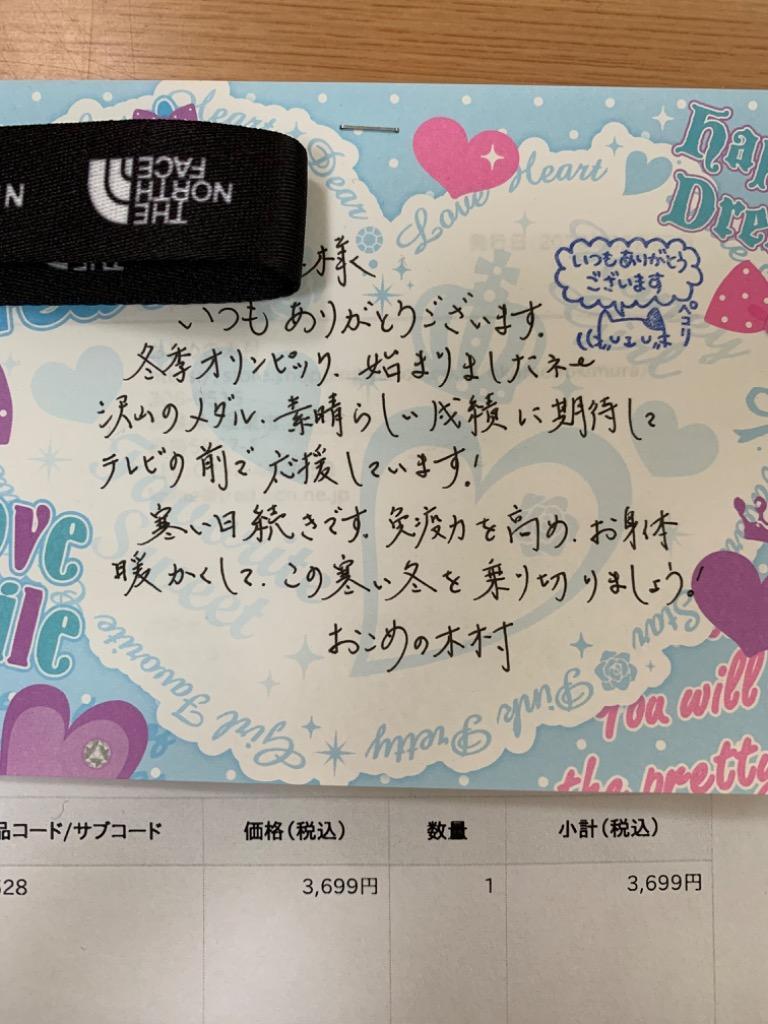 Heart Dear
Love Heart
THE
NORTH
FACE
N
様
いつもありがとう
ございます
ペコリ
いつもありがとうございます.
冬季オリンピック、始まりましたネー
沢山のメダル、素晴らしい成績に期待して
テレビの前で応援しています!
寒い日続きです。免疫力を高め、お身体
暖かくして、この寒い冬を乗り切りましょう!
おこめの木村
Favorite
Sweet
Girl Favorite
Pink Pretty
Star
You will
the pretty
品コード/サブコード 価格(税込) 数量 小計(税込)
528 3,699円 1 3,699円